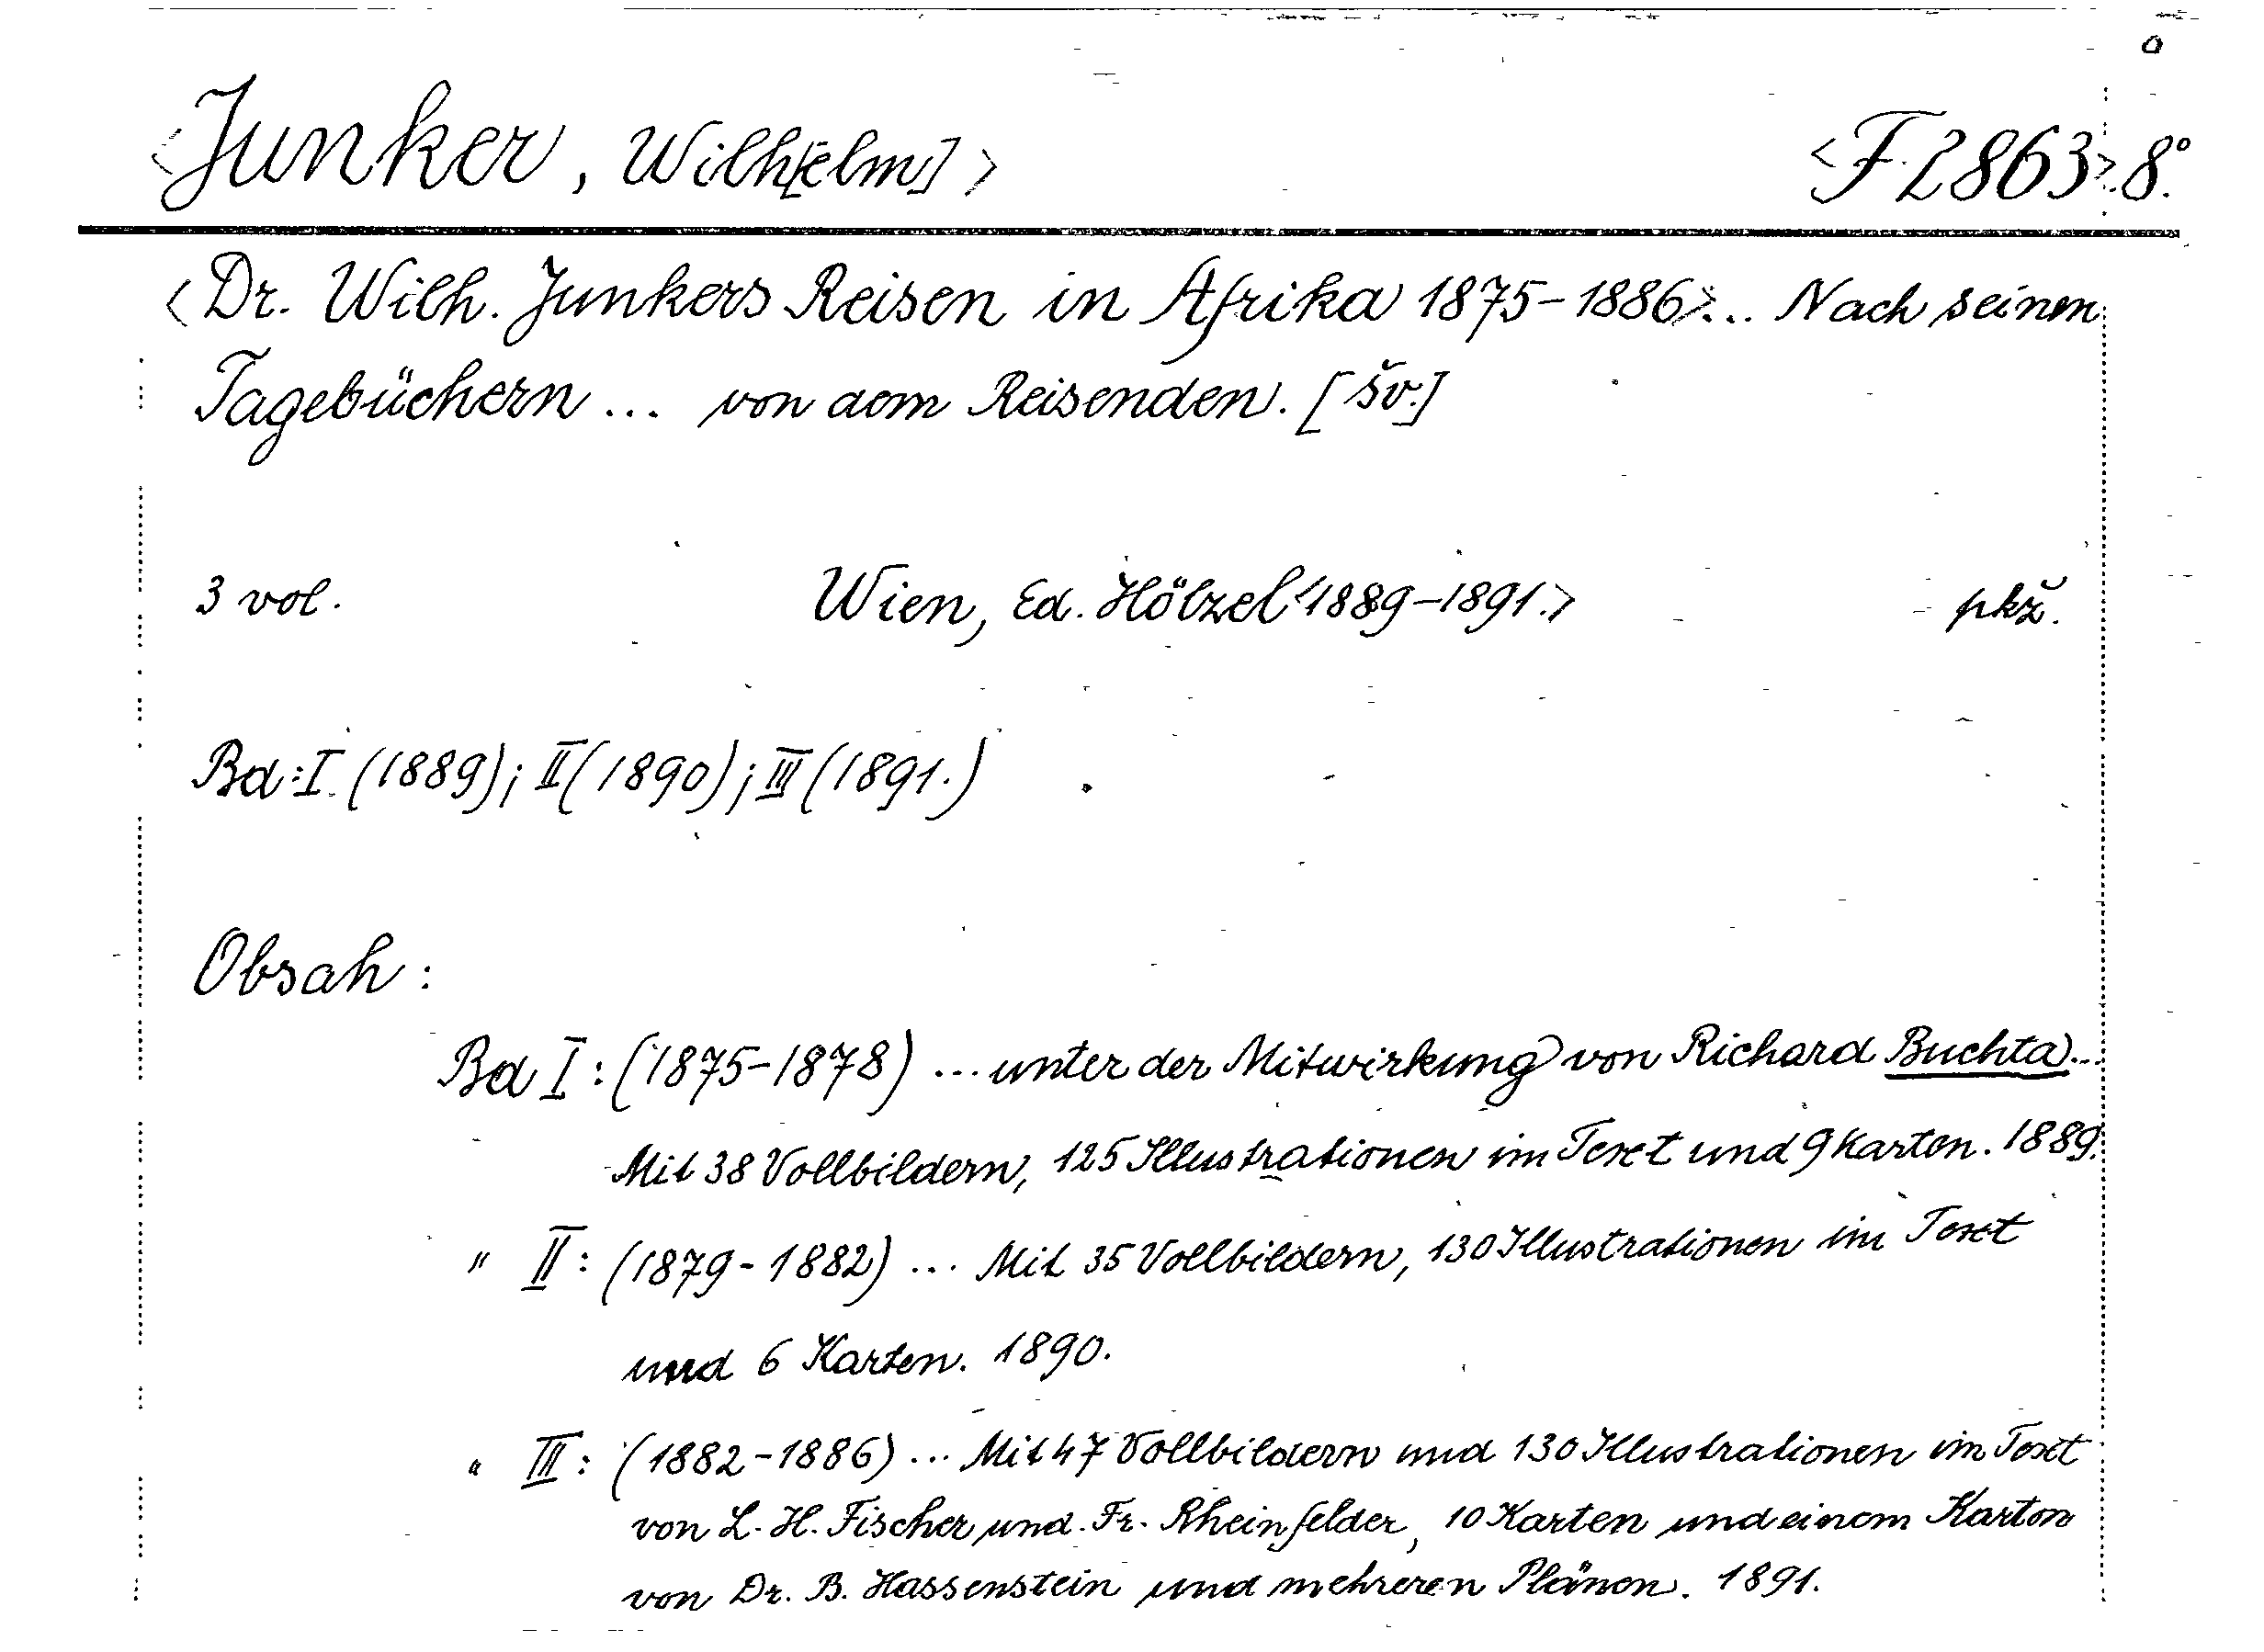 <Junker, Wilh[elm]> <F 2863>.8°.
<Dr. Wilh. Junkers Reisen in Afrika 1875-1886>... Nach seinen
Tagebüchern ... von dem Reisenden. [šv.]
3 vol. Wien, Ed. Hölzel <1889-1891.> pkž.
Bd: I. (1889); II (1890); III (1891.)
Obsah:
Bd I: (1875-1878) ... unter der Mitwirkung von Richard Buchta...
Mit 38 Vollbildern, 125 Illustrationen im Text und 9 Karten. 1889.
" II: (1879-1882) ... Mit 35 Vollbildern, 130 Illustrationen im Text
und 6 Karten. 1890.
" III: (1882-1886) ... Mit 47 Vollbildern und 130 Illustrationen im Text
von L. H. Fischer und Fr. Rheinfelder, 10 Karten und einem Karton
von Dr. B. Hassenstein und mehreren Plänen. 1891.